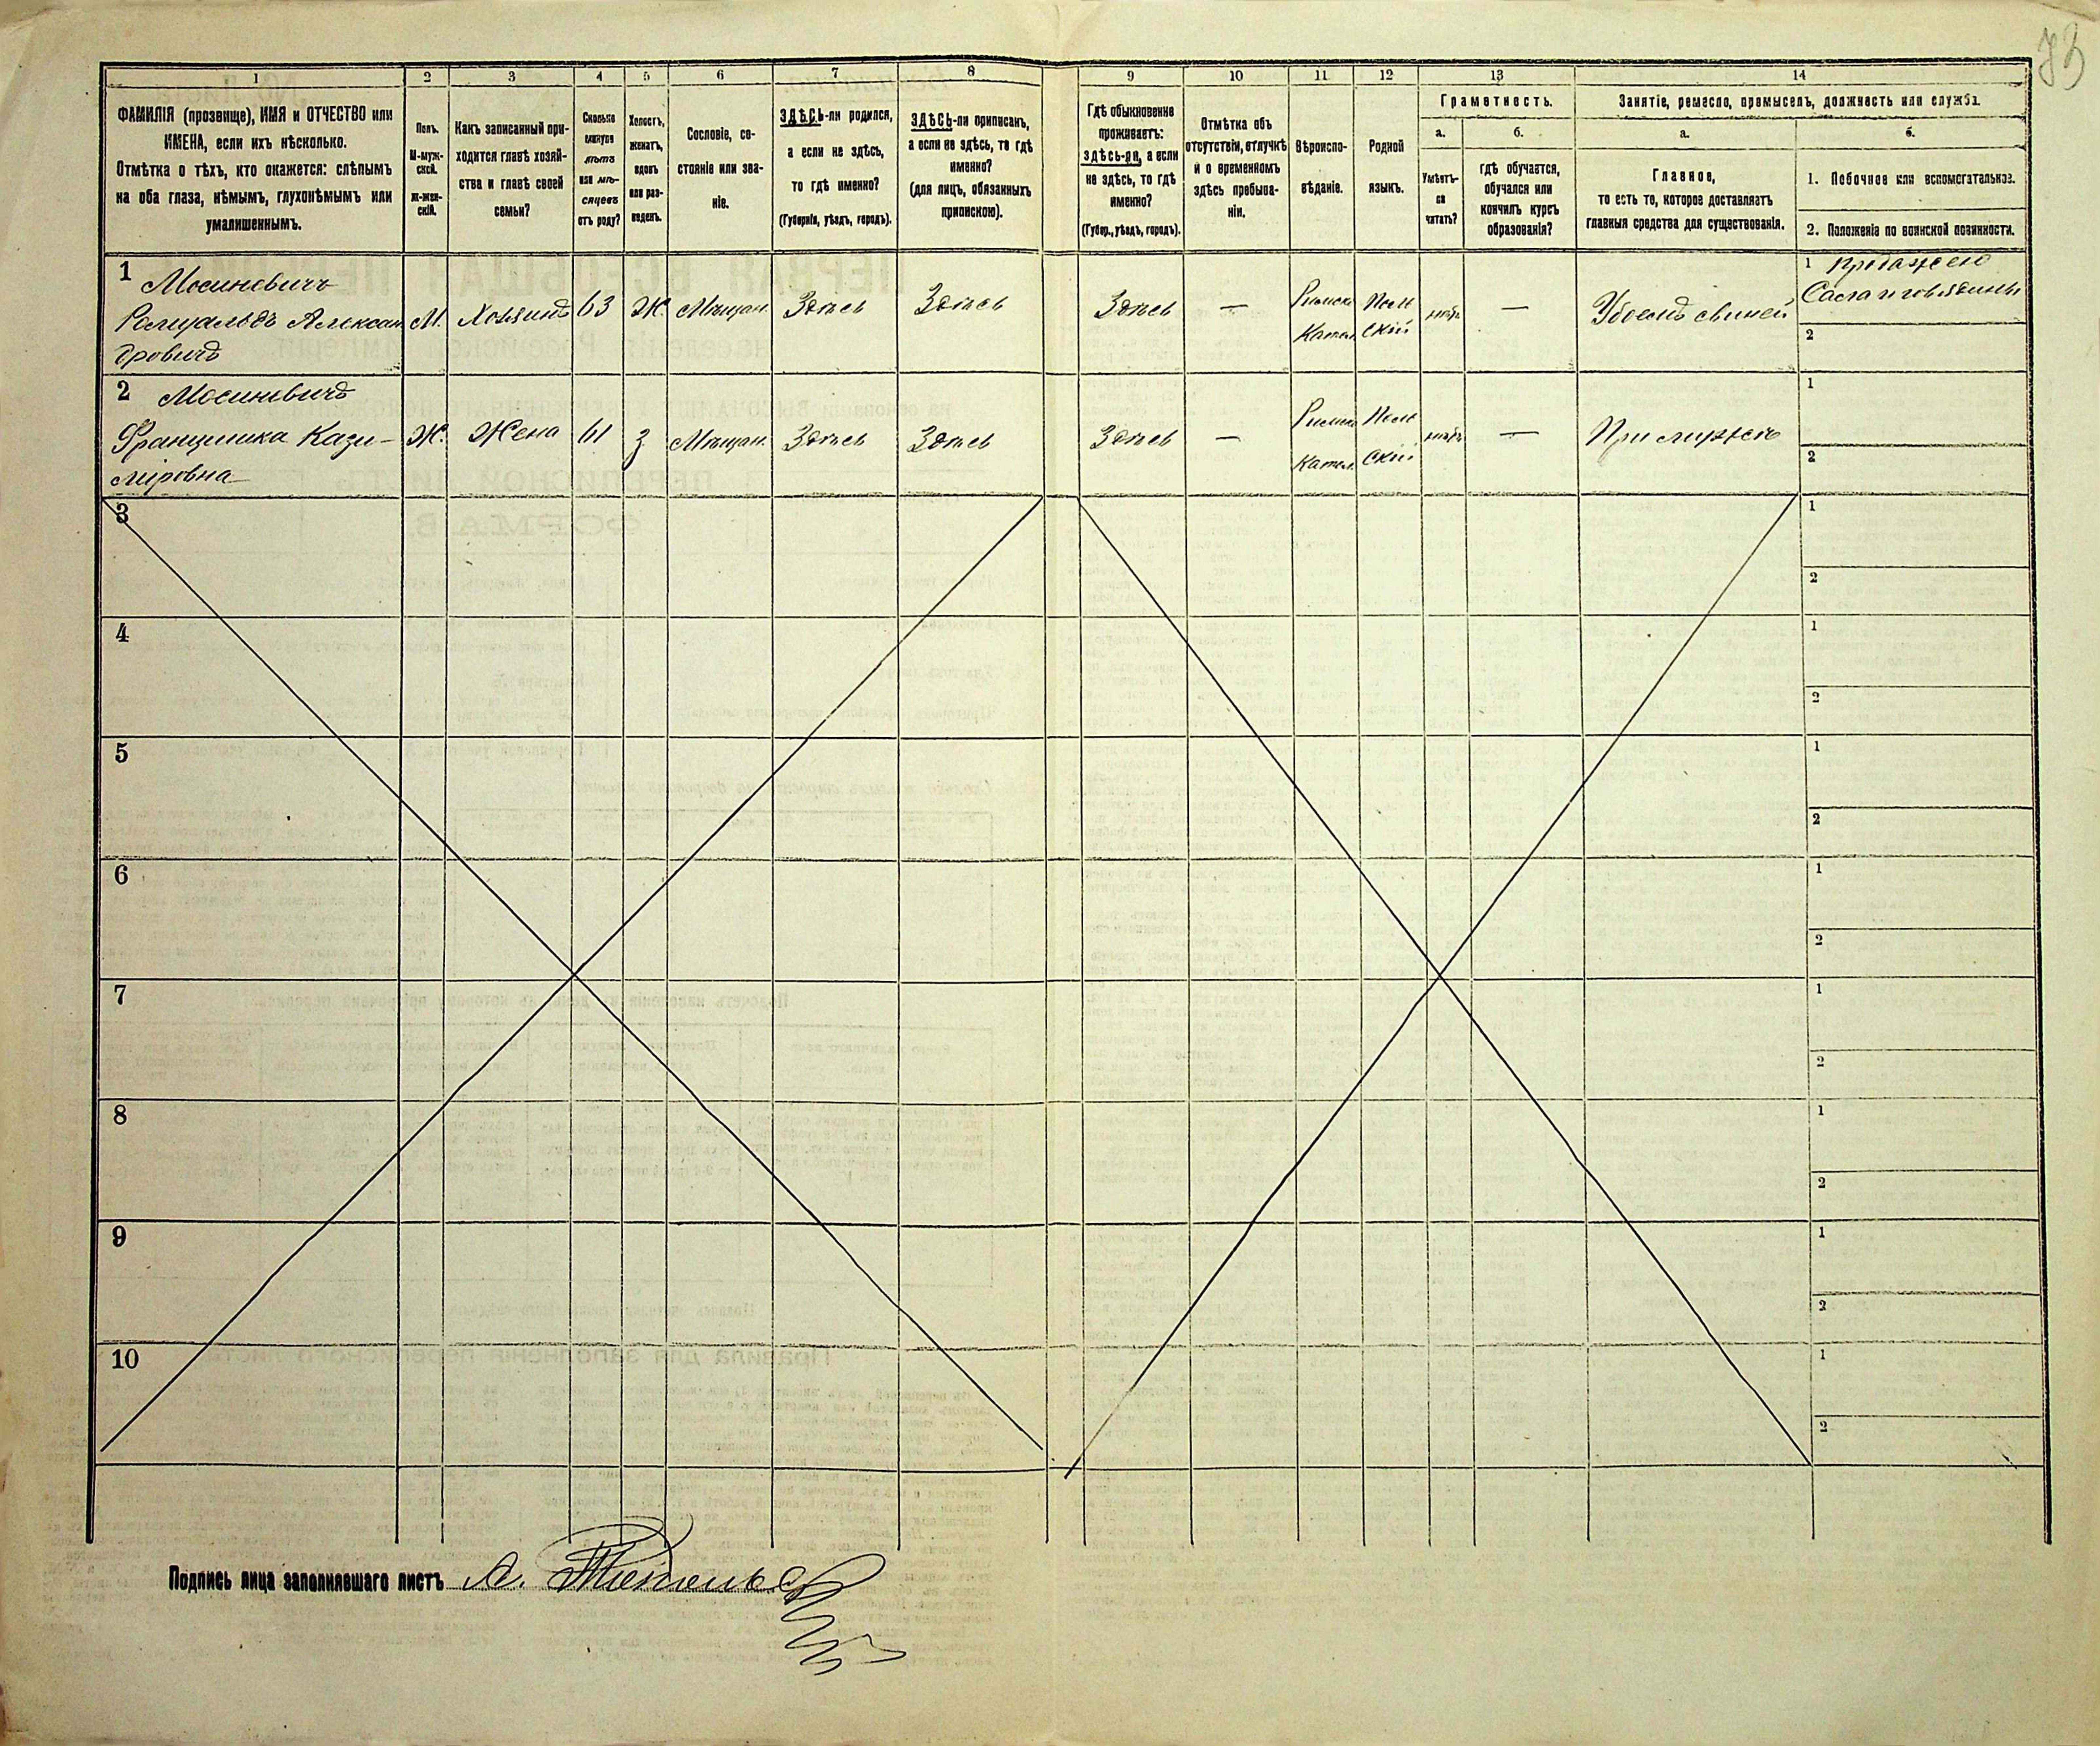 73
1 2 3 4 5 6 7 8 9 10 11 12 13 14
ФАМИЛІЯ (прозвище), ИМЯ и ОТЧЕСТВО или
ИМЕНА, если ихъ нѣсколько.
Отмѣтка о тѣхъ, кто окажется: слѣпымъ
на оба глаза, нѣмымъ, глухонѣмымъ или
умалишеннымъ.
Полъ.
М-муж-
ской.
ж-жен-
скій.
Какъ записанный при-
ходится главѣ хозяй-
ства и главѣ своей
семьи?
Сколько
минуло
лѣтъ
или мѣ-
сяцевъ
отъ роду?
Холостъ,
женатъ,
вдовъ
или раз-
веденъ.
Сословіе, со-
стояніе или зва-
ніе.
ЗДѢСЬ-ли родился,
а если не здѣсь,
то гдѣ именно?
(Губернія, уѣздъ, городъ).
ЗДѢСЬ-ли приписанъ,
а если не здѣсь, то гдѣ
именно?
(для лицъ, обязанныхъ
припискою).
Гдѣ обыкновенно
проживаетъ:
здѣсь-ли, а если
не здѣсь, то гдѣ
именно?
(Губер., уѣздъ, городъ).
Отмѣтка объ
отсутствіи, отлучкѣ
и о временномъ
здѣсь пребыва-
ніи.
Вѣроиспо-
вѣданіе.
Родной
языкъ.
Грамотность.
а.
Умѣетъ-
ли
читать?
б.
гдѣ обучается,
обучался или
кончилъ курсъ
образованія?
Занятіе, ремесло, промыселъ, должность или служба.
а.
Главное,
то есть то, которое доставляетъ
главныя средства для существованія.
б.
1. Побочное или вспомогательное.
2. Положеніе по воинской повинности.
1 Мосиневичъ
Ромуальдъ Алексан
дровичъ
М.
Хозяинъ
63
Ж.
Мѣщан.
Здѣсь
Здѣсь
Здѣсь
—
Римско
Катол.
Поль
скій
—
Убоемъ свиней
1 продажею
Сала и говядины
2
2 Мосиневичъ
Францишка Кази-
міровна
Ж.
Жена
61
З
Мѣщан.
Здѣсь
Здѣсь
Здѣсь
—
Римско
Катол.
Поль
скій
—
При мужѣ
1
2
3
1
2
4
1
2
5
1
2
6
1
2
7
1
2
8
1
2
9
1
2
10
1
2
Подпись лица заполнявшаго листъ А.